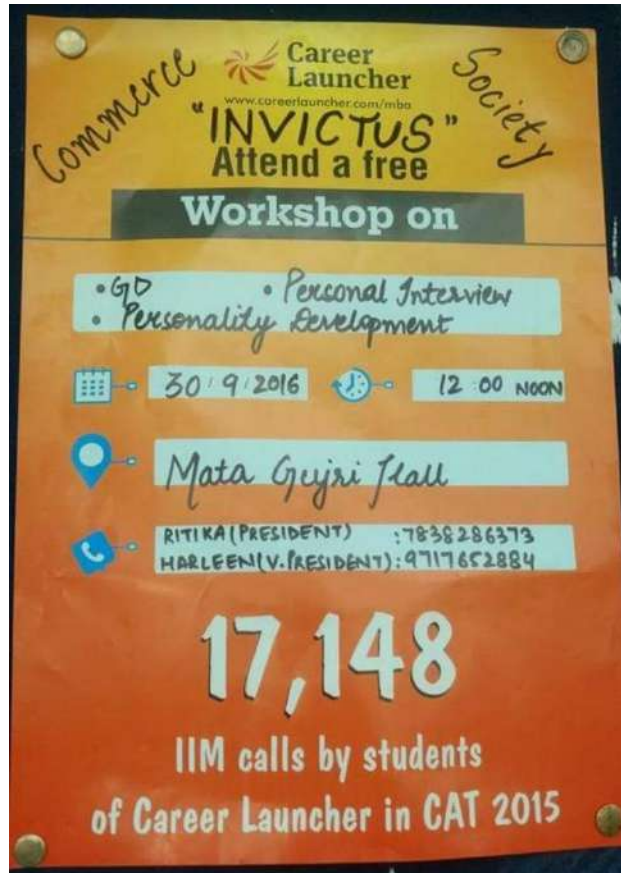 Commerce Society
Career
Launcher
www.careerlauncher.com/mba
"INVICTUS"
Attend a free
Workshop on
• GD • Personal Interview
• Personality Development
30/9/2016 12:00 NOON
Mata Gujri Hall
RITIKA (PRESIDENT) :7838286373
HARLEEN (V.PRESIDENT):9717652884
17,148
IIM calls by students
of Career Launcher in CAT 2015